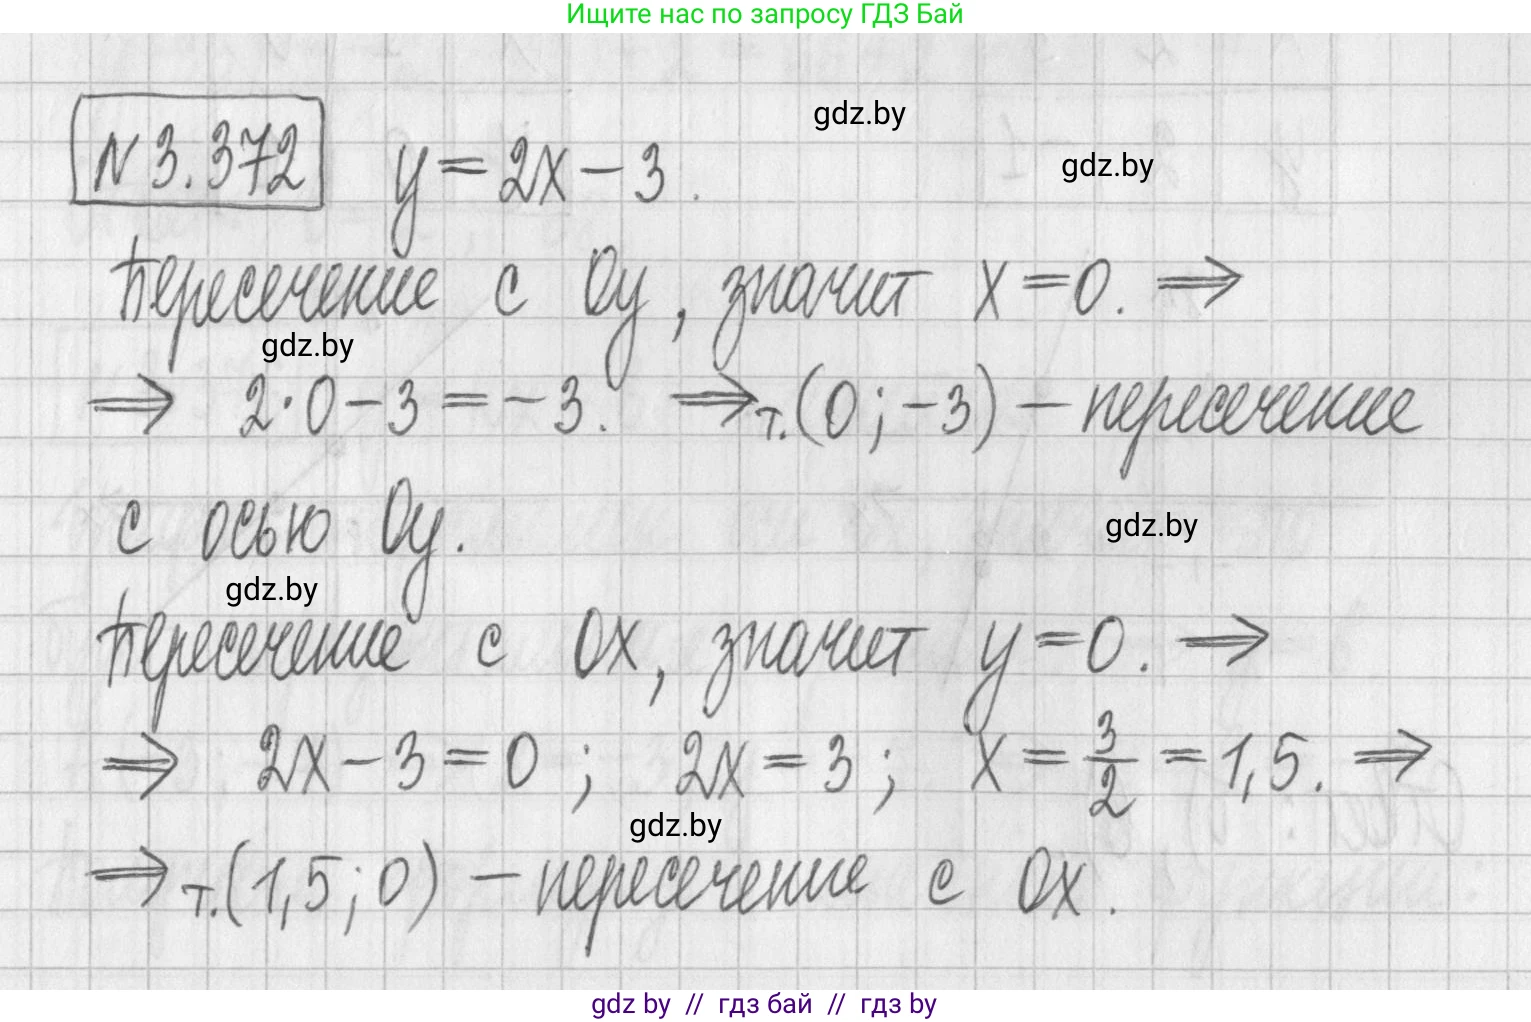 Ищите нас по запросу ГДЗ Бай
gdz.by
N 3.372 y = 2x − 3.
gdz.by
Пересечение с Oy, значит x = 0. ⇒
gdz.by
⇒ 2·0 − 3 = −3. ⇒ т.(0; −3) − пересечение
с осью Oy.
gdz.by
gdz.by
Пересечение с Ox, значит y = 0. ⇒
⇒ 2x − 3 = 0; 2x = 3; x = 3/2 = 1,5. ⇒
gdz.by
⇒ т.(1,5; 0) − пересечение с Ox.
gdz by // гдз бай // гдз by